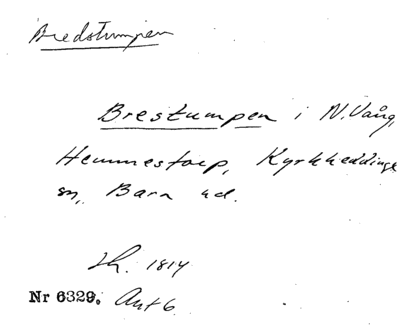 Bredstumpen
Brestumpen i N. Vång,
Hemmestorp, Kyrkheddinge
sn, Bara hd.
Sk. 1814
Nr 6329. Akt 6.